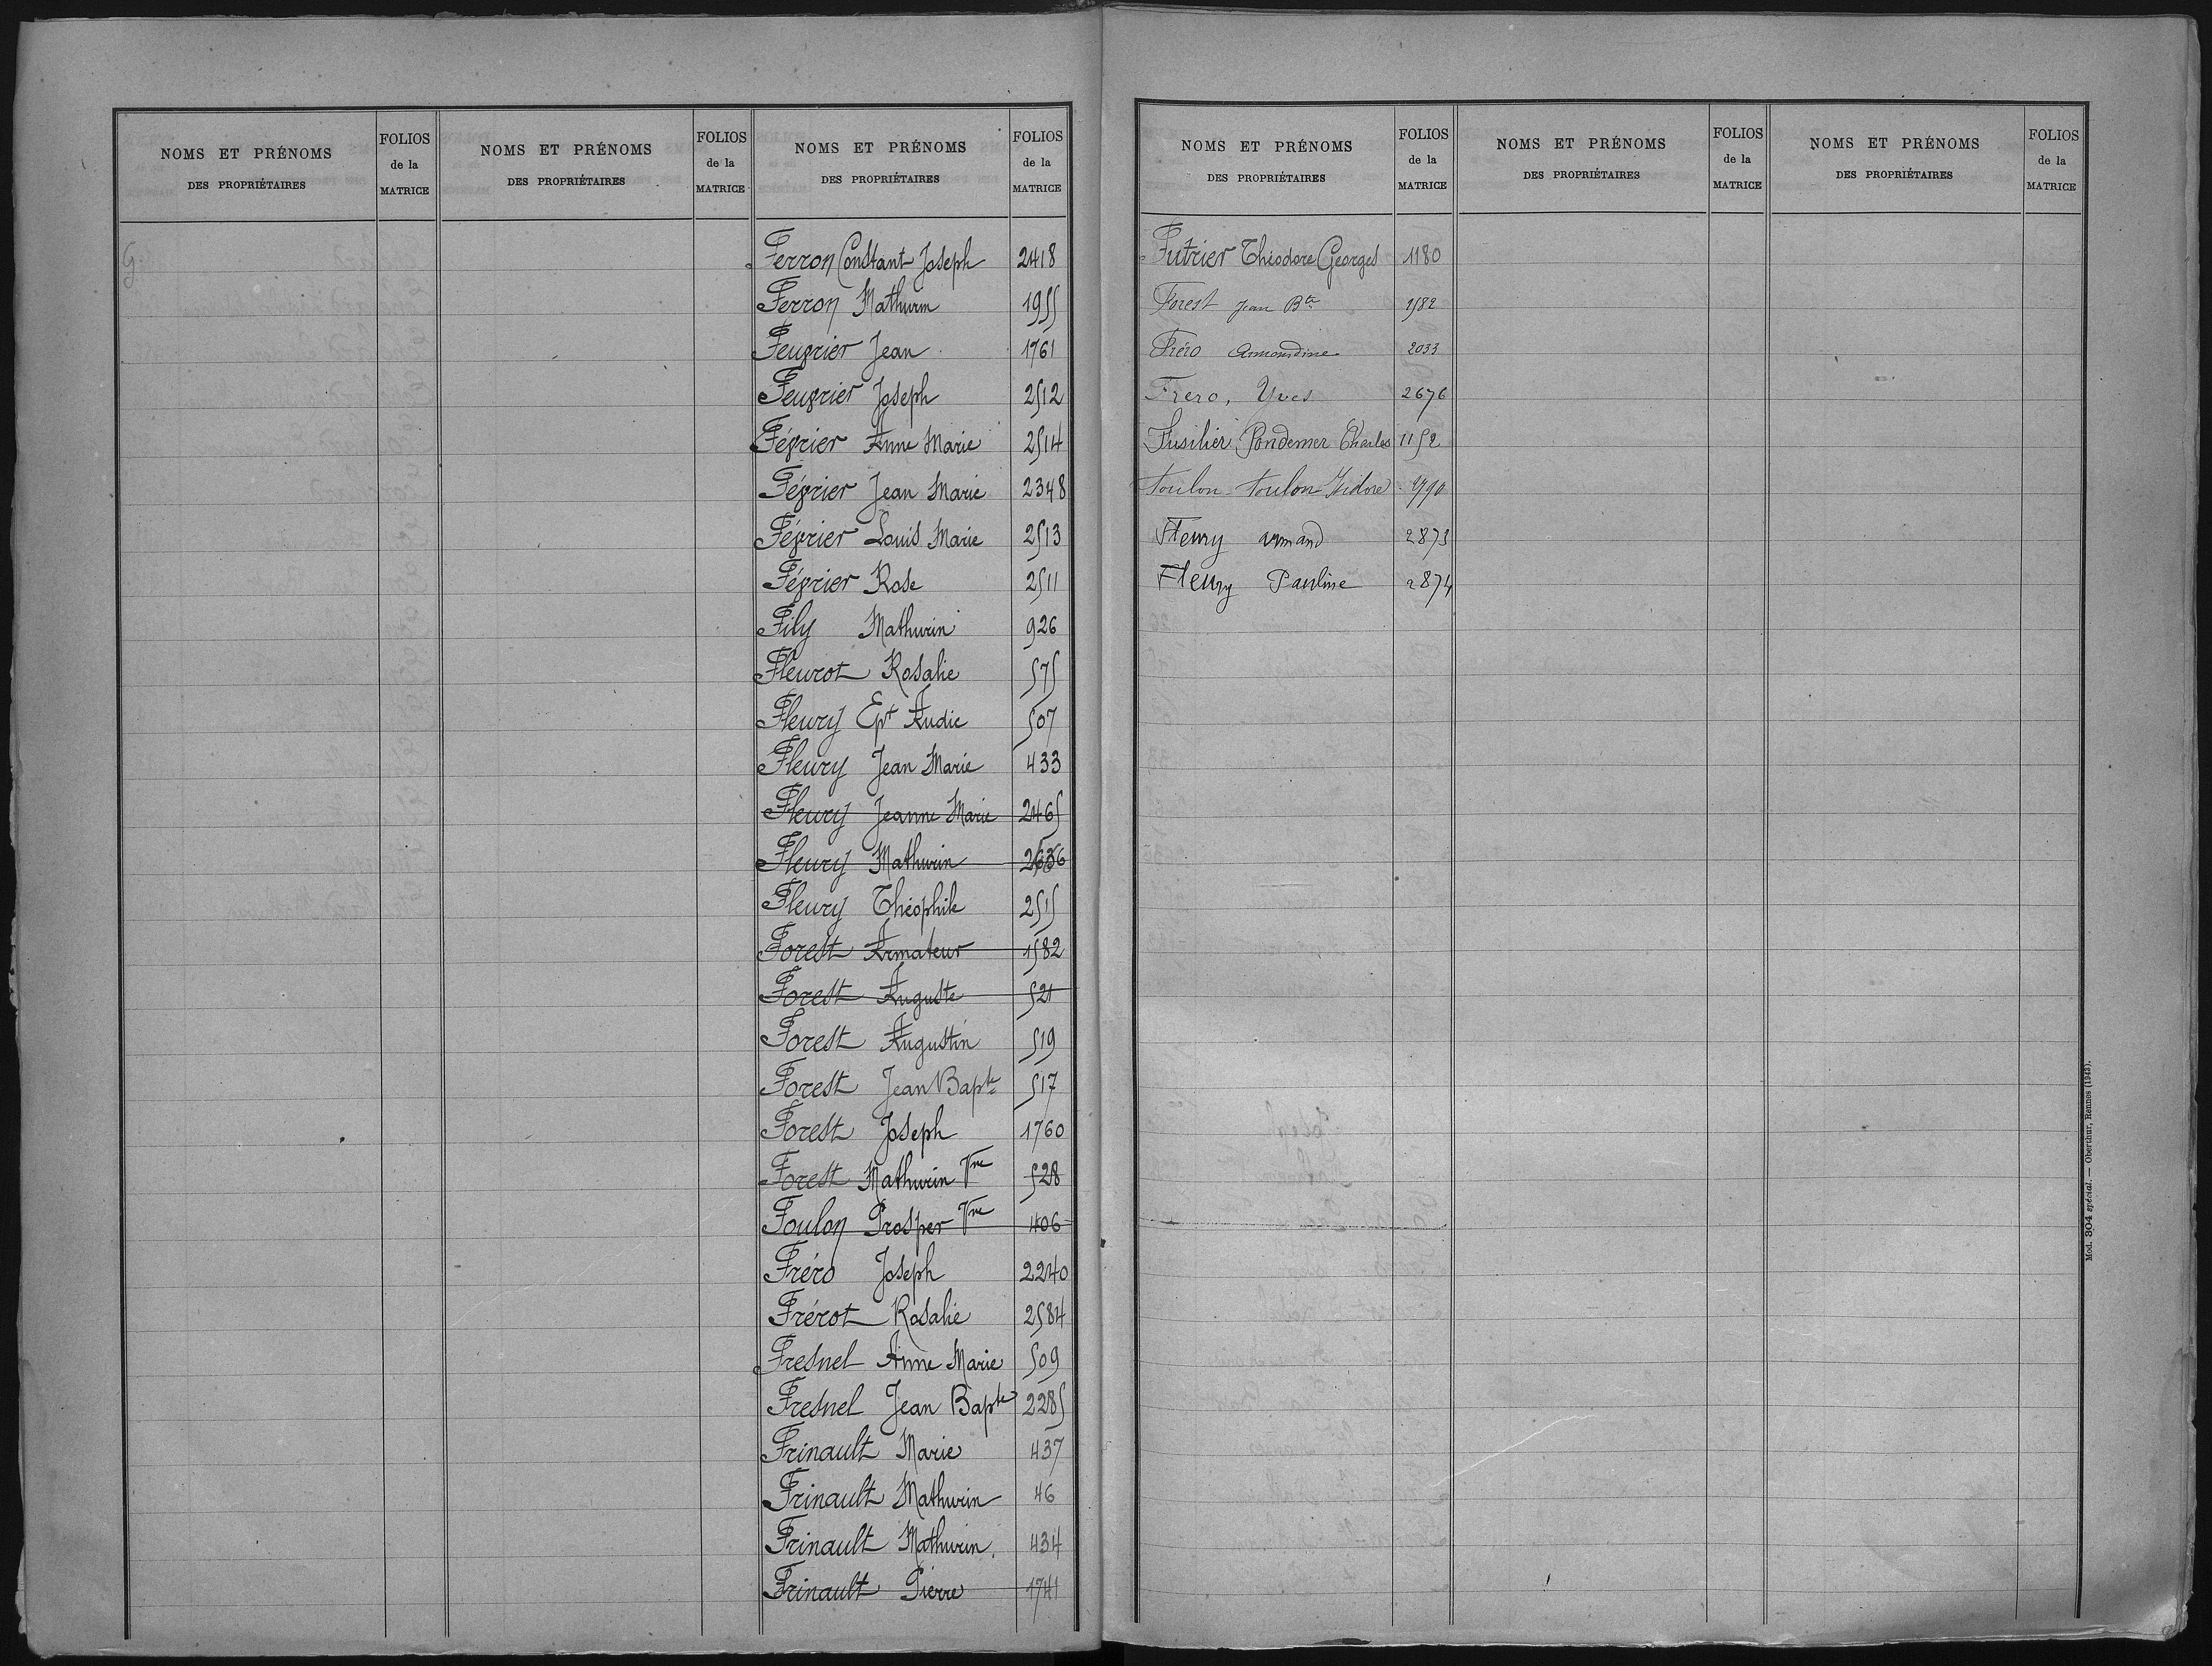 NOMS ET PRÉNOMS
DES PROPRIÉTAIRES
FOLIOS
de la
MATRICE
NOMS ET PRÉNOMS
DES PROPRIÉTAIRES
FOLIOS
de la
MATRICE
NOMS ET PRÉNOMS
DES PROPRIÉTAIRES
FOLIOS
de la
MATRICE
G.
Ferron Constant Joseph 2418
Ferron Mathurin 1955
Feuvrier Jean 1761
Feuvrier Joseph 2512
Février Anne Marie 2514
Février Jean Marie 2348
Février Louis Marie 2513
Février Rose 2511
Fily Mathurin 926
Fleurot Rosalie 575
Fleury Ept Audic 507
Fleury Jean Marie 433
Fleury Jeanne Marie 2465
Fleury Mathurin
Fleury Théophile 2515
Forest Armateur 1582
Forest Auguste 521
Forest Augustin 519
Forest Jean Bapte 517
Forest Joseph 1760
Forest Mathurin Vve 528
Foulon Prosper Vve 406
Fréro Joseph 2240
Frérot Rosalie 2584
Fresnel Anne Marie 509
Fresnel Jean Bapte 2285
Frinault Marie 437
Frinault Mathurin 46
Frinault Mathurin. 434
Frinault Pierre 1741
NOMS ET PRÉNOMS
DES PROPRIÉTAIRES
FOLIOS
de la
MATRICE
NOMS ET PRÉNOMS
DES PROPRIÉTAIRES
FOLIOS
de la
MATRICE
NOMS ET PRÉNOMS
DES PROPRIÉTAIRES
FOLIOS
de la
MATRICE
Futrier Théodore Georges 1180
Forest Jean Bte 1582
Fréro Armandine 2033
Frero, Yves 2676
Fusilier Pondemer Charles 1152
Foulon Foulon Isidore
Fleury Armand 2873
Fleury Pauline 2874
Mod. 304 spécial. — Oberthur, Rennes (1943).